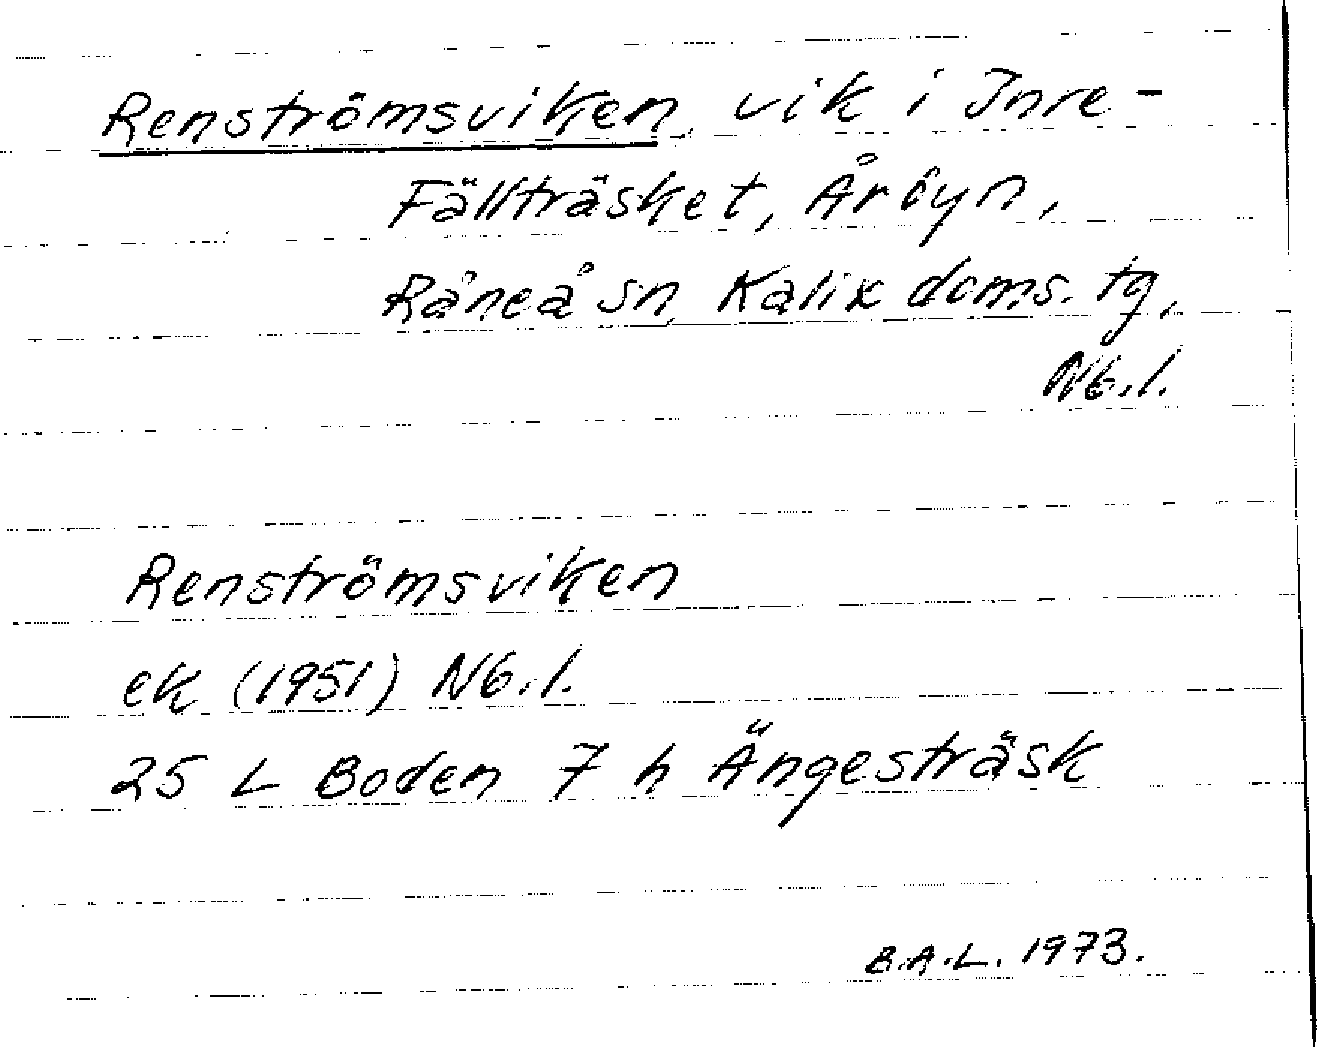 Renströmsviken, vik i Inre-
Fällträsket, Årbyn,
Råneå sn, Kalix doms. tg,
Nb. l.
Renströmsviken
ek (1951) Nb. l.
25 L Boden 7 h Ängesträsk
B.A.L. 1973.